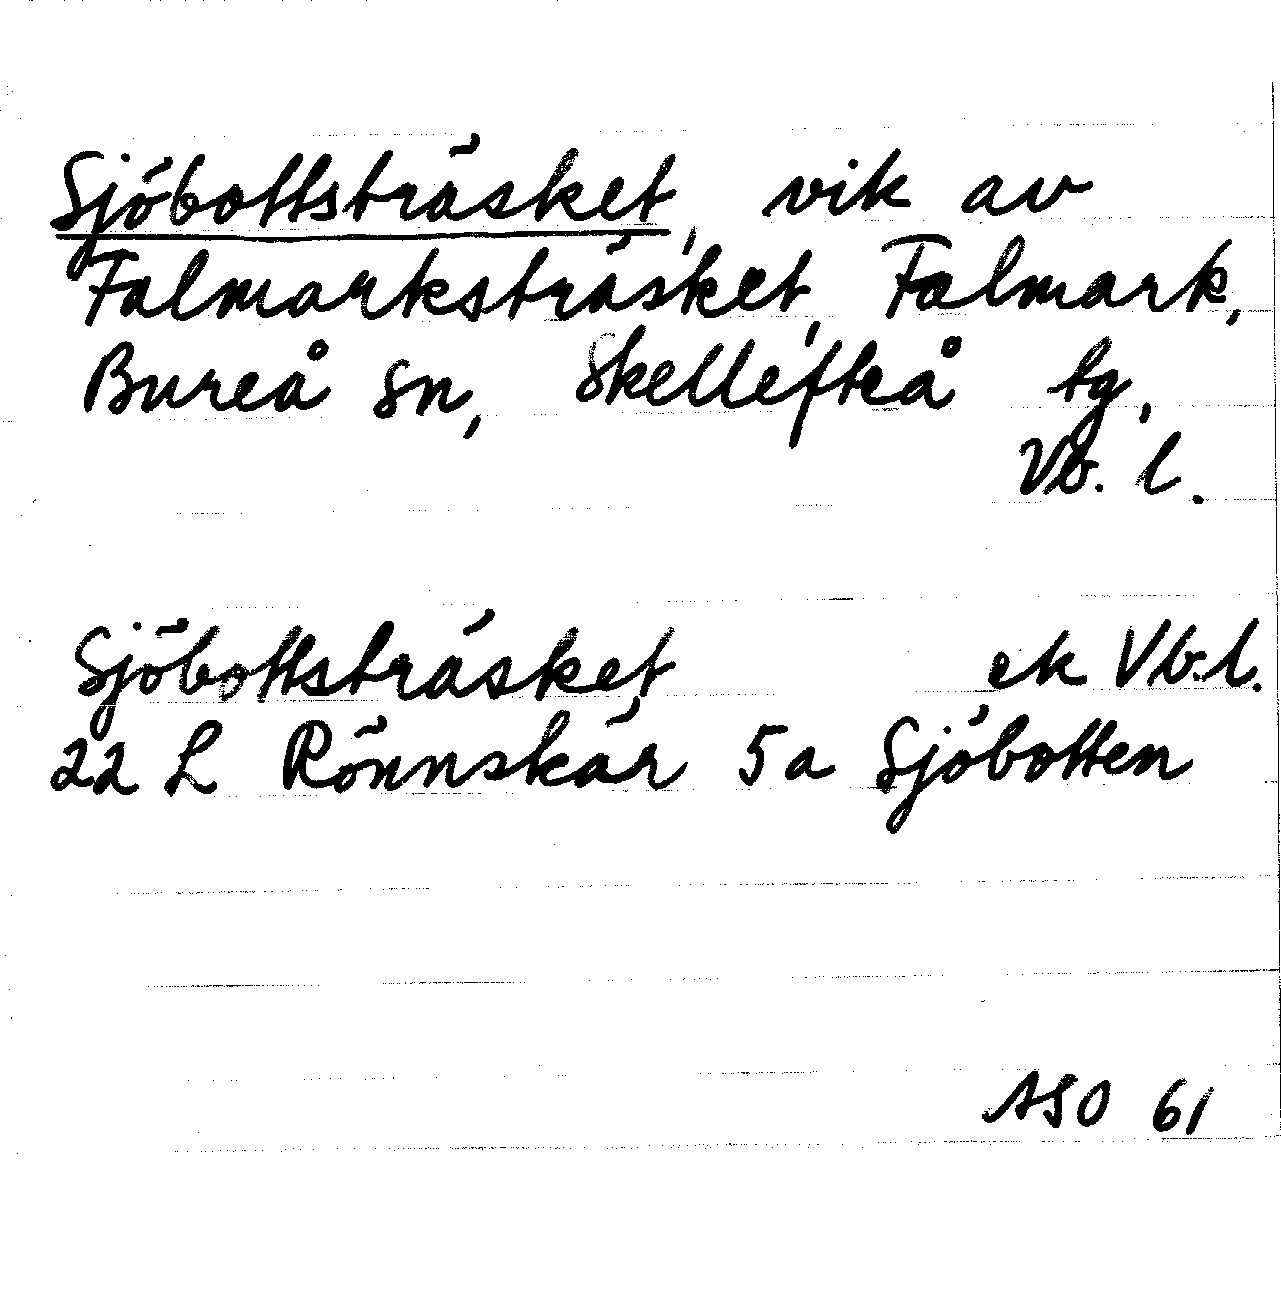 Sjöbottsträsket, vik av
Falmarksträsket, Falmark,
Bureå sn, Skellefteå tg,
Vb. l.
Sjöbottsträsket ek Vb.l.
22 L Rönnskär 5a Sjöbotten
ASO 61